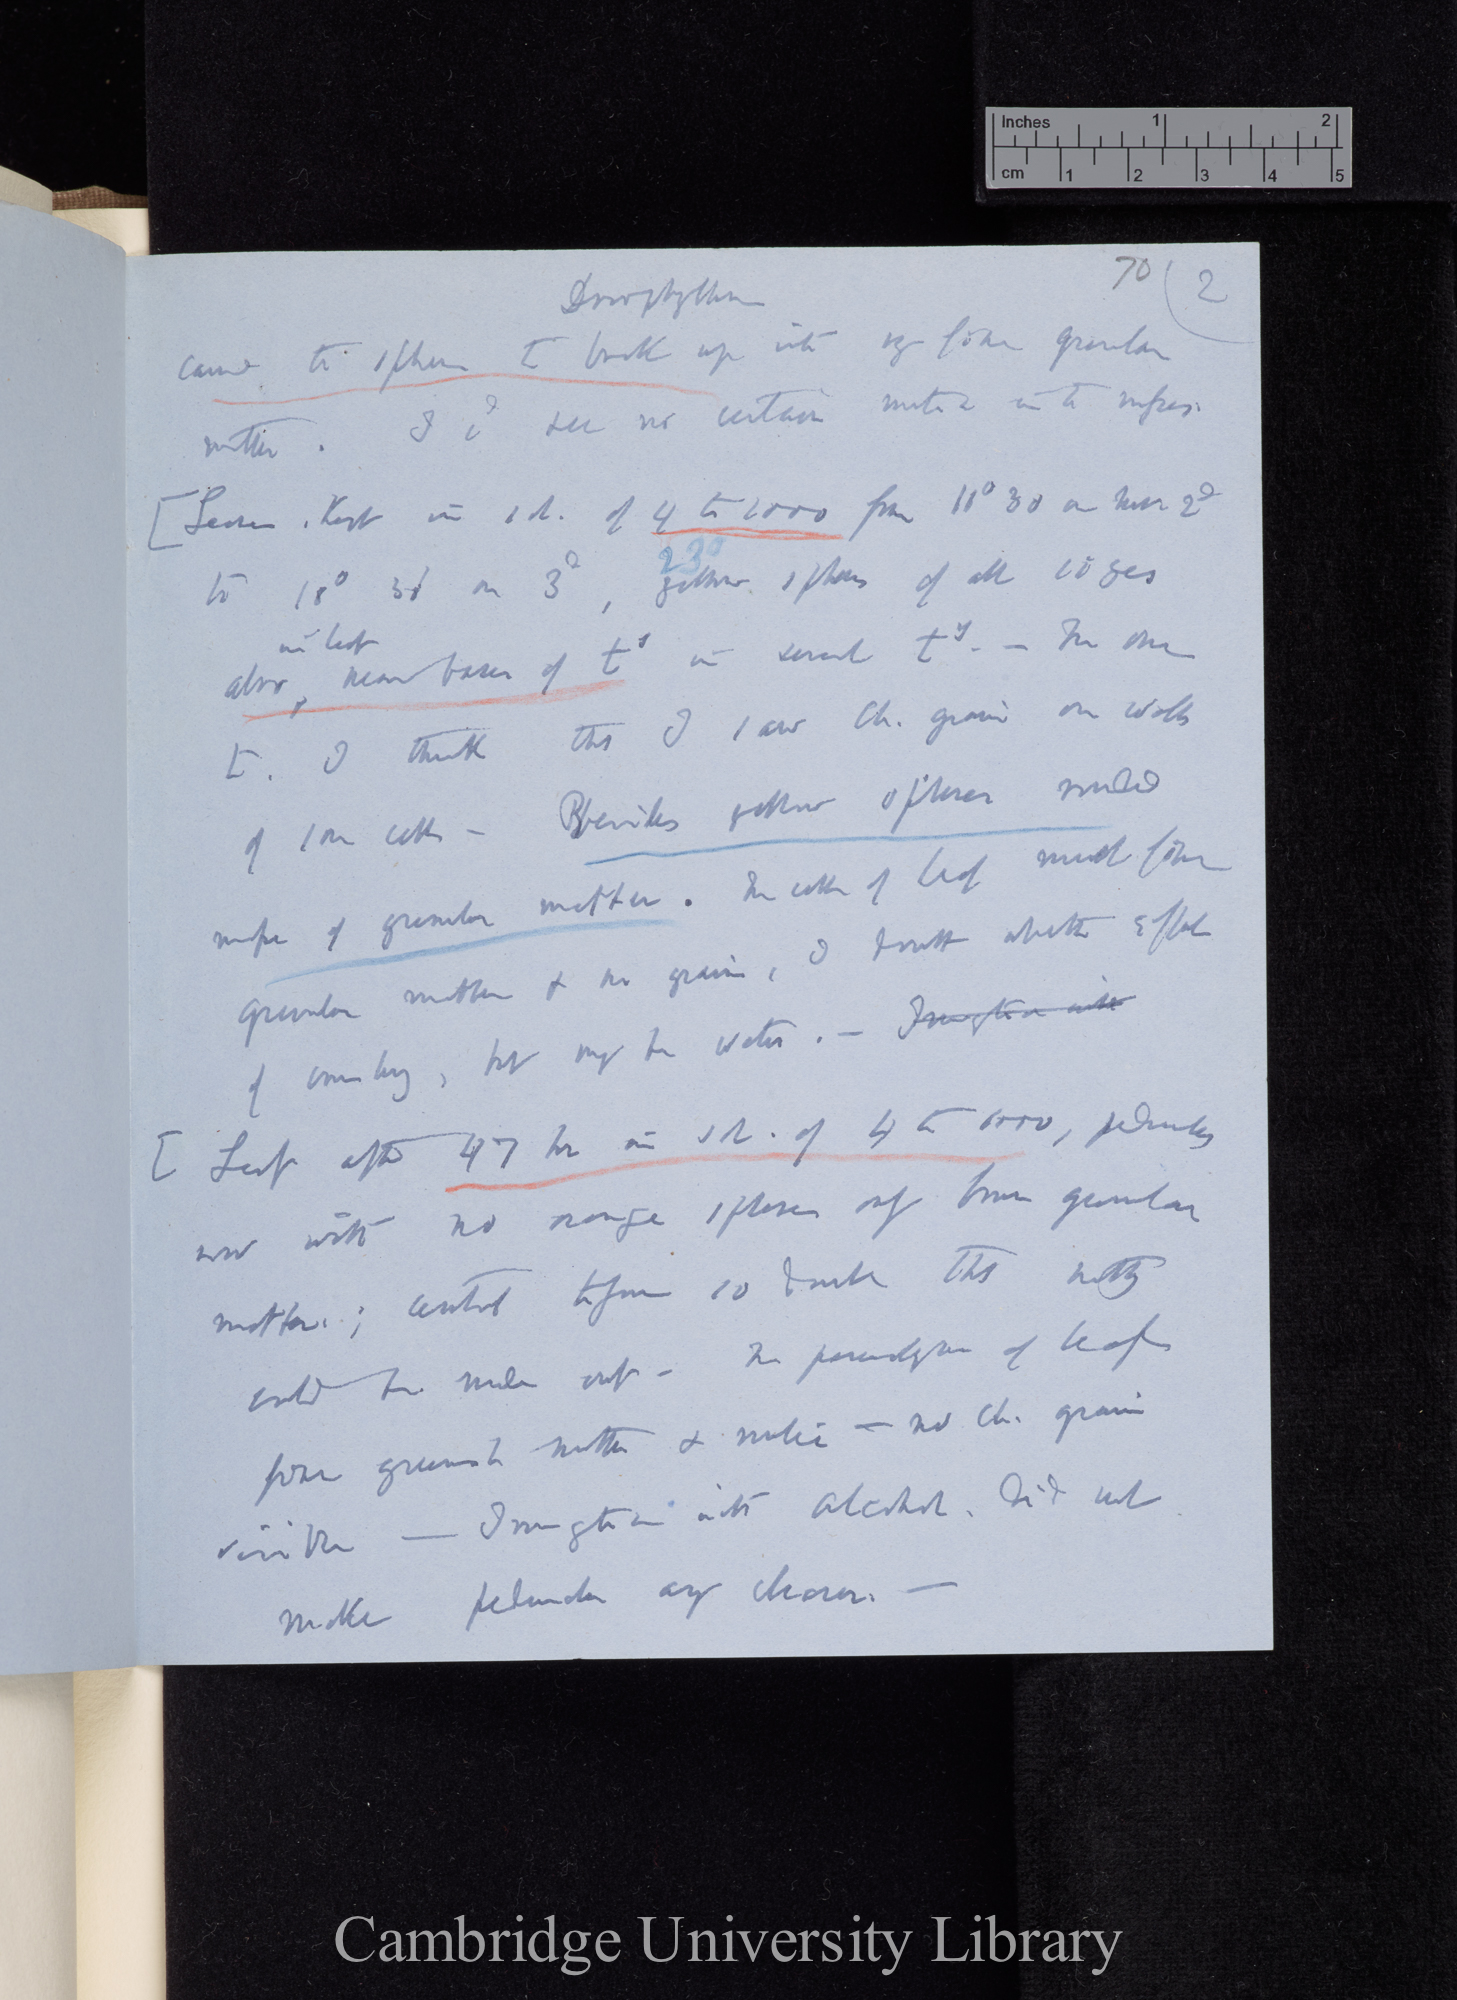 Inches 1 2
cm 1 2 3 4 5
70 (2
Drosophyllum
cause the spheres to break up into v. fine granular
matter. I cd see no certain motion in the masses.
[Leaves kept in sol. of 4 to 1000 from 11° 30 on Nov 2d
23°
to 10° 30' on 3d, yellow spheres of all sizes
in leaf
also, near bases of ts in several ts. — In one
t. I think that I saw Ch. grains on walls
of some cells — Besides yellow spheres
masses of granular matter. The cells of leaf much fine
granular matter & no grains, I doubt whether effect
of , but may be water. —
[Leaf after 47 hrs in sol. of 4 to 1000, peduncles
now with no orange spheres only brown granular
matter; central so dark that nothing
could be made out — The parenchyma of leaf
fine greenish matter & nuclei — no Ch. grains
visible — Irrigation with alcohol. did not
make peduncles any clearer. —
Cambridge University Library